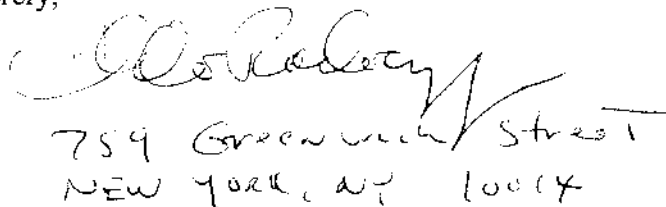 759 Greenwich Street
NEW YORK, NY 10014